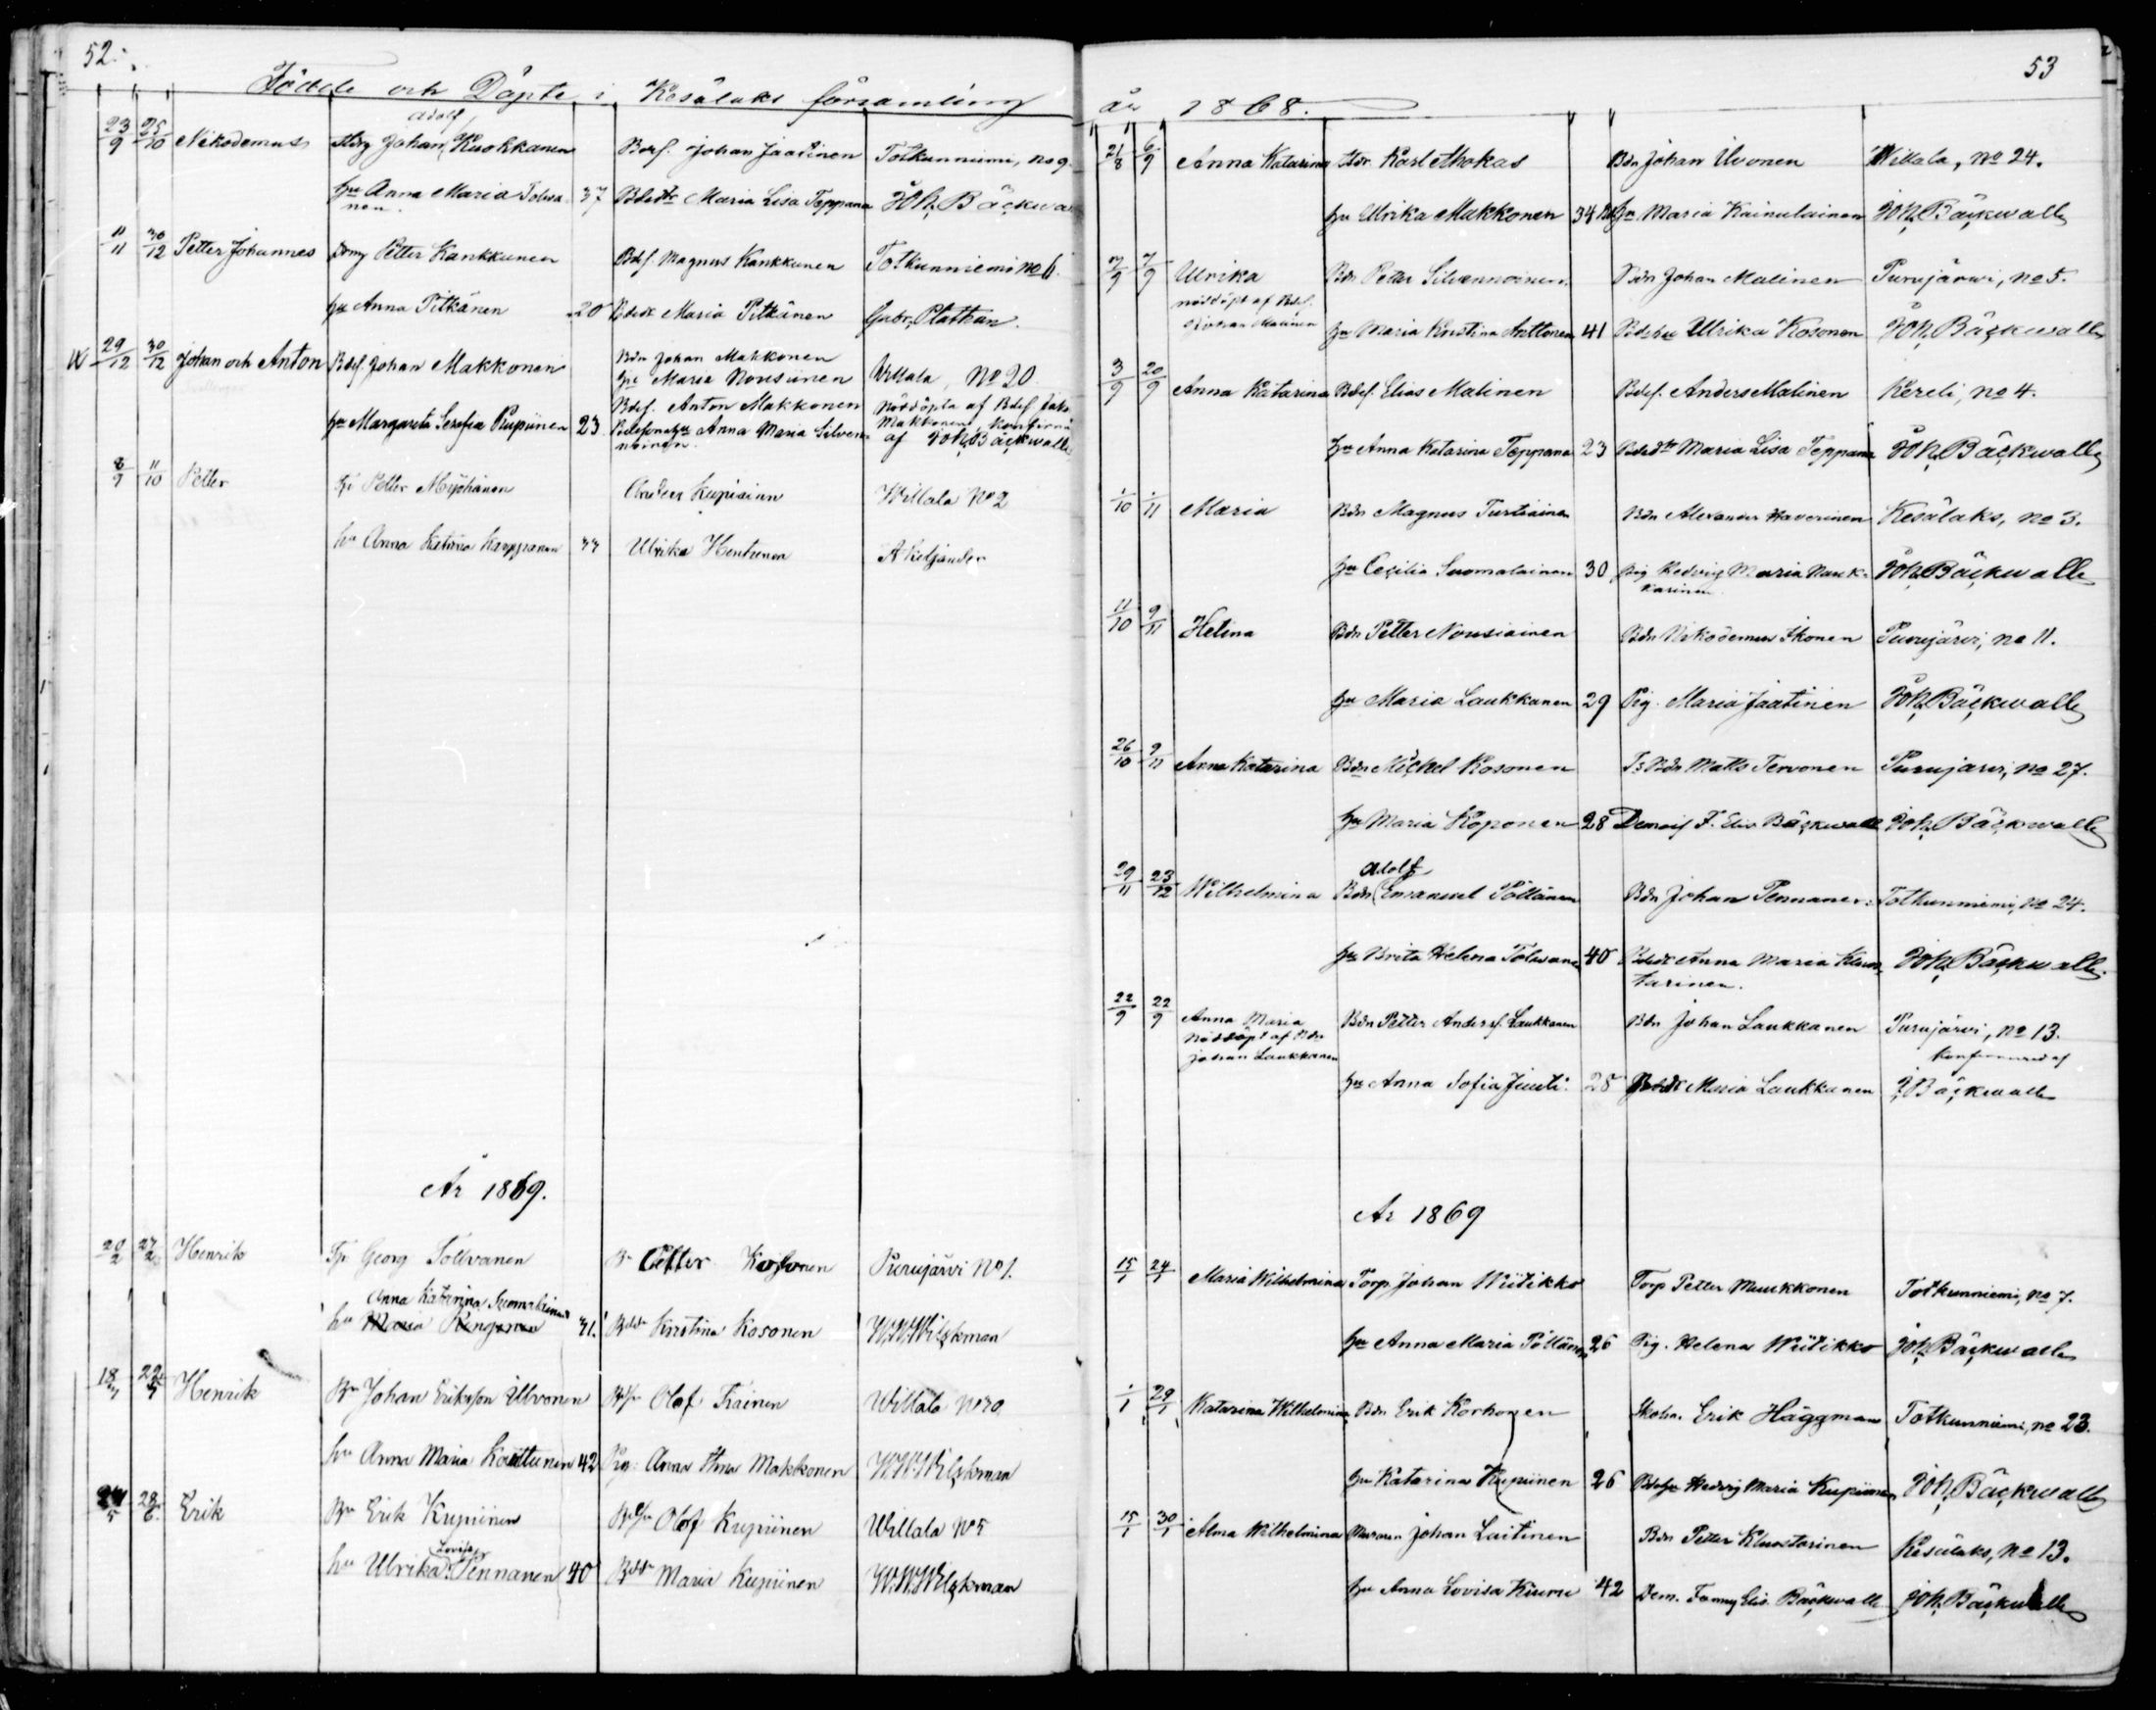 52.
Födde och Döpte i Kesälaks församling
Adolf
23/9 25/10 Nikodemus Johan Kuokkanen Bdsf. Johan Jaatinen Totkunniemi, no 9.
hu Anna Maria Tolva- 37 Bdsdtr Maria Lisa Toppana Joh. Bäckwa
nen.
11/11 30/12 Petter Johannes Petter Kankkunen Bdsf. Magnus Kankkunen Totkunniemi no 6.
hu Anna Pitkänen 20 Bdsdtr Maria Pitkänen Gabr. Plathan.
29/12 30/12 Johan och Anton Bdsf. Johan Makkonen Bdn Johan Makkonen
hu Maria Nousiinen Willala, No 20
Bdsf. Anton Makkonen Nöddöpta af Bdsf. Joh.
hu Margareta Serafia Kupiinen 23 hu Anna Maria Silven- Makkonen, konfirm.
noinen. af Joh. Bäckwall
8/9 11/10 Petter Petter Myöhänen Anders Kupiainen Willala No 2
hu Anna Katrina Karppanen 33 Ulrika Hentunen A Keljander
År 1869.
20/2 27/2 Henrik Tp. Georg Tollvanen Petter Kosonen Purujärvi No 1.
Anna Katarina Suomalainen
hu Maria 41. Kristina Kosonen W.W. Wilskman
18/7 22/7 Henrik Bn Johan Eriksson Ullvonen Olof Träinen Willala No 20
hu Anna Maria Kaittunen 42 Pig. Anna Makkonen W.W. Wilskman
5 29/6 Erik Bn Erik Kupiinen Olof Kupiinen Willala No 5
Lovisa
hu Ulrika Pennanen 40 Maria Kupiinen W.W. Wilskman
53
år 1868.
21/8 6/9 Anna Katarina Karl Mokas Bdn Johan Uvonen Willala, No 24.
hu Ulrika Makkonen 34 hu Maria Kainulainen Joh. Bäckwall
3/9 7/9 Ulrika Bdn Petter Silvennoinen Bdn Johan Malinen Purujärwi, No 5.
nöddöpt af Bdsf.
Johan Malinen hu Maria Kristina Anttonen 41 Bdshu Ulrika Kosonen Joh. Bäckwall
3/9 20/9 Anna Katarina Bdsf. Elias Malinen Bdsf. Anders Malinen Kereli, no 4.
hu Anna Katarina Toppana 23 Bdsdtr Maria Lisa Toppana Joh. Bäckwall
1/10 1/11 Maria Bdn Magnus Turtiainen Bdn Alexander Haverinen Kesälaks, no 3.
hu Cecilia Suomalainen 30 Pig Hedvig Maria Nauk- Joh. Bäckwall
karinen
11/10 9/11 Helina Bdn Petter Nousiainen Bdn Nikodemus Ikonen Purujärvi, no 11.
hu Maria Laukkanen 29 Pig. Maria Jaatinen Joh. Bäckwall
26/10 9/11 Anna Katarina Bdn Michel Kosonen Bdn Matts Tervonen Purujärvi, no 27.
hu Maria Koponen 28 Demois F. Elis Bäckwall Joh. Bäckwall
Adolf
29/11 23/12 Wilhelmina Bdn Emanuel Pöllänen Bdn Johan Pennanen Totkunniemi, No 24.
hu Brita Helena Tolwanen 40 Bdsdr Anna Maria Kluus- Joh. Bäckwall.
tarinen.
22/9 22/9 Anna Maria Bdn Petter Anderss. Laukkanen Bdn Johan Laukkanen Purujärvi, No 13.
Nöddöpt af Bdn konfirmerad af
Johan Laukkanen
hu Anna Sofia Juuti 28 Maria Laukkanen J. Bäckwall
År 1869
15/1 24/1 Maria Wilhelmina Torp. Johan Wiitikko Torp Petter Muukkonen Totkunniemi, no 7.
hu Anna Maria Pöllänen 26 Pig. Helena Wiitikko Joh. Bäckwall
1/1 29/1 Katarina Wilhelmina Bdn Erik Korhonen Erik Häggman Totkunniemi, no 23.
hu Katarina Kupiinen 26 Hedvig Maria Kupiinen Joh. Bäckwall
15/1 30/1 Alma Wilhelmina Johan Laitinen Bdn Petter Kluustarinen Kesälaks, no 13.
hu Anna Lovisa Kiuru 42 Dem. Fanny Elis. Bäckwall Joh. Bäckwall